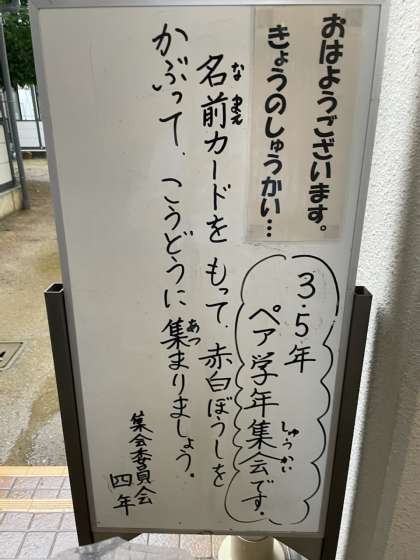 おはようございます。
きょうのしゅうかい…
3・5年
ペア学年集会です。
しゅうかい
名前カードをもって、赤白ぼうしを
なまえ
かぶって、こうどうに集まりましょう。
あつ
集会委員会
四年